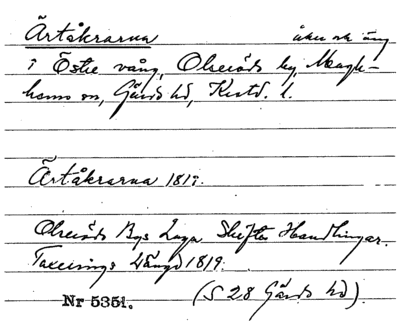 Ärtåkrarna åker och äng
i Östre vång, Olseröds by, Maglehems sn, Gärds hd, Krstd. l.
Ärtåkrarna 1819.
Olseröds Bys Laga Skiftes Handlingar.
Taxerings Längd 1819.
Nr 5351. (S 28 Gärds hd).